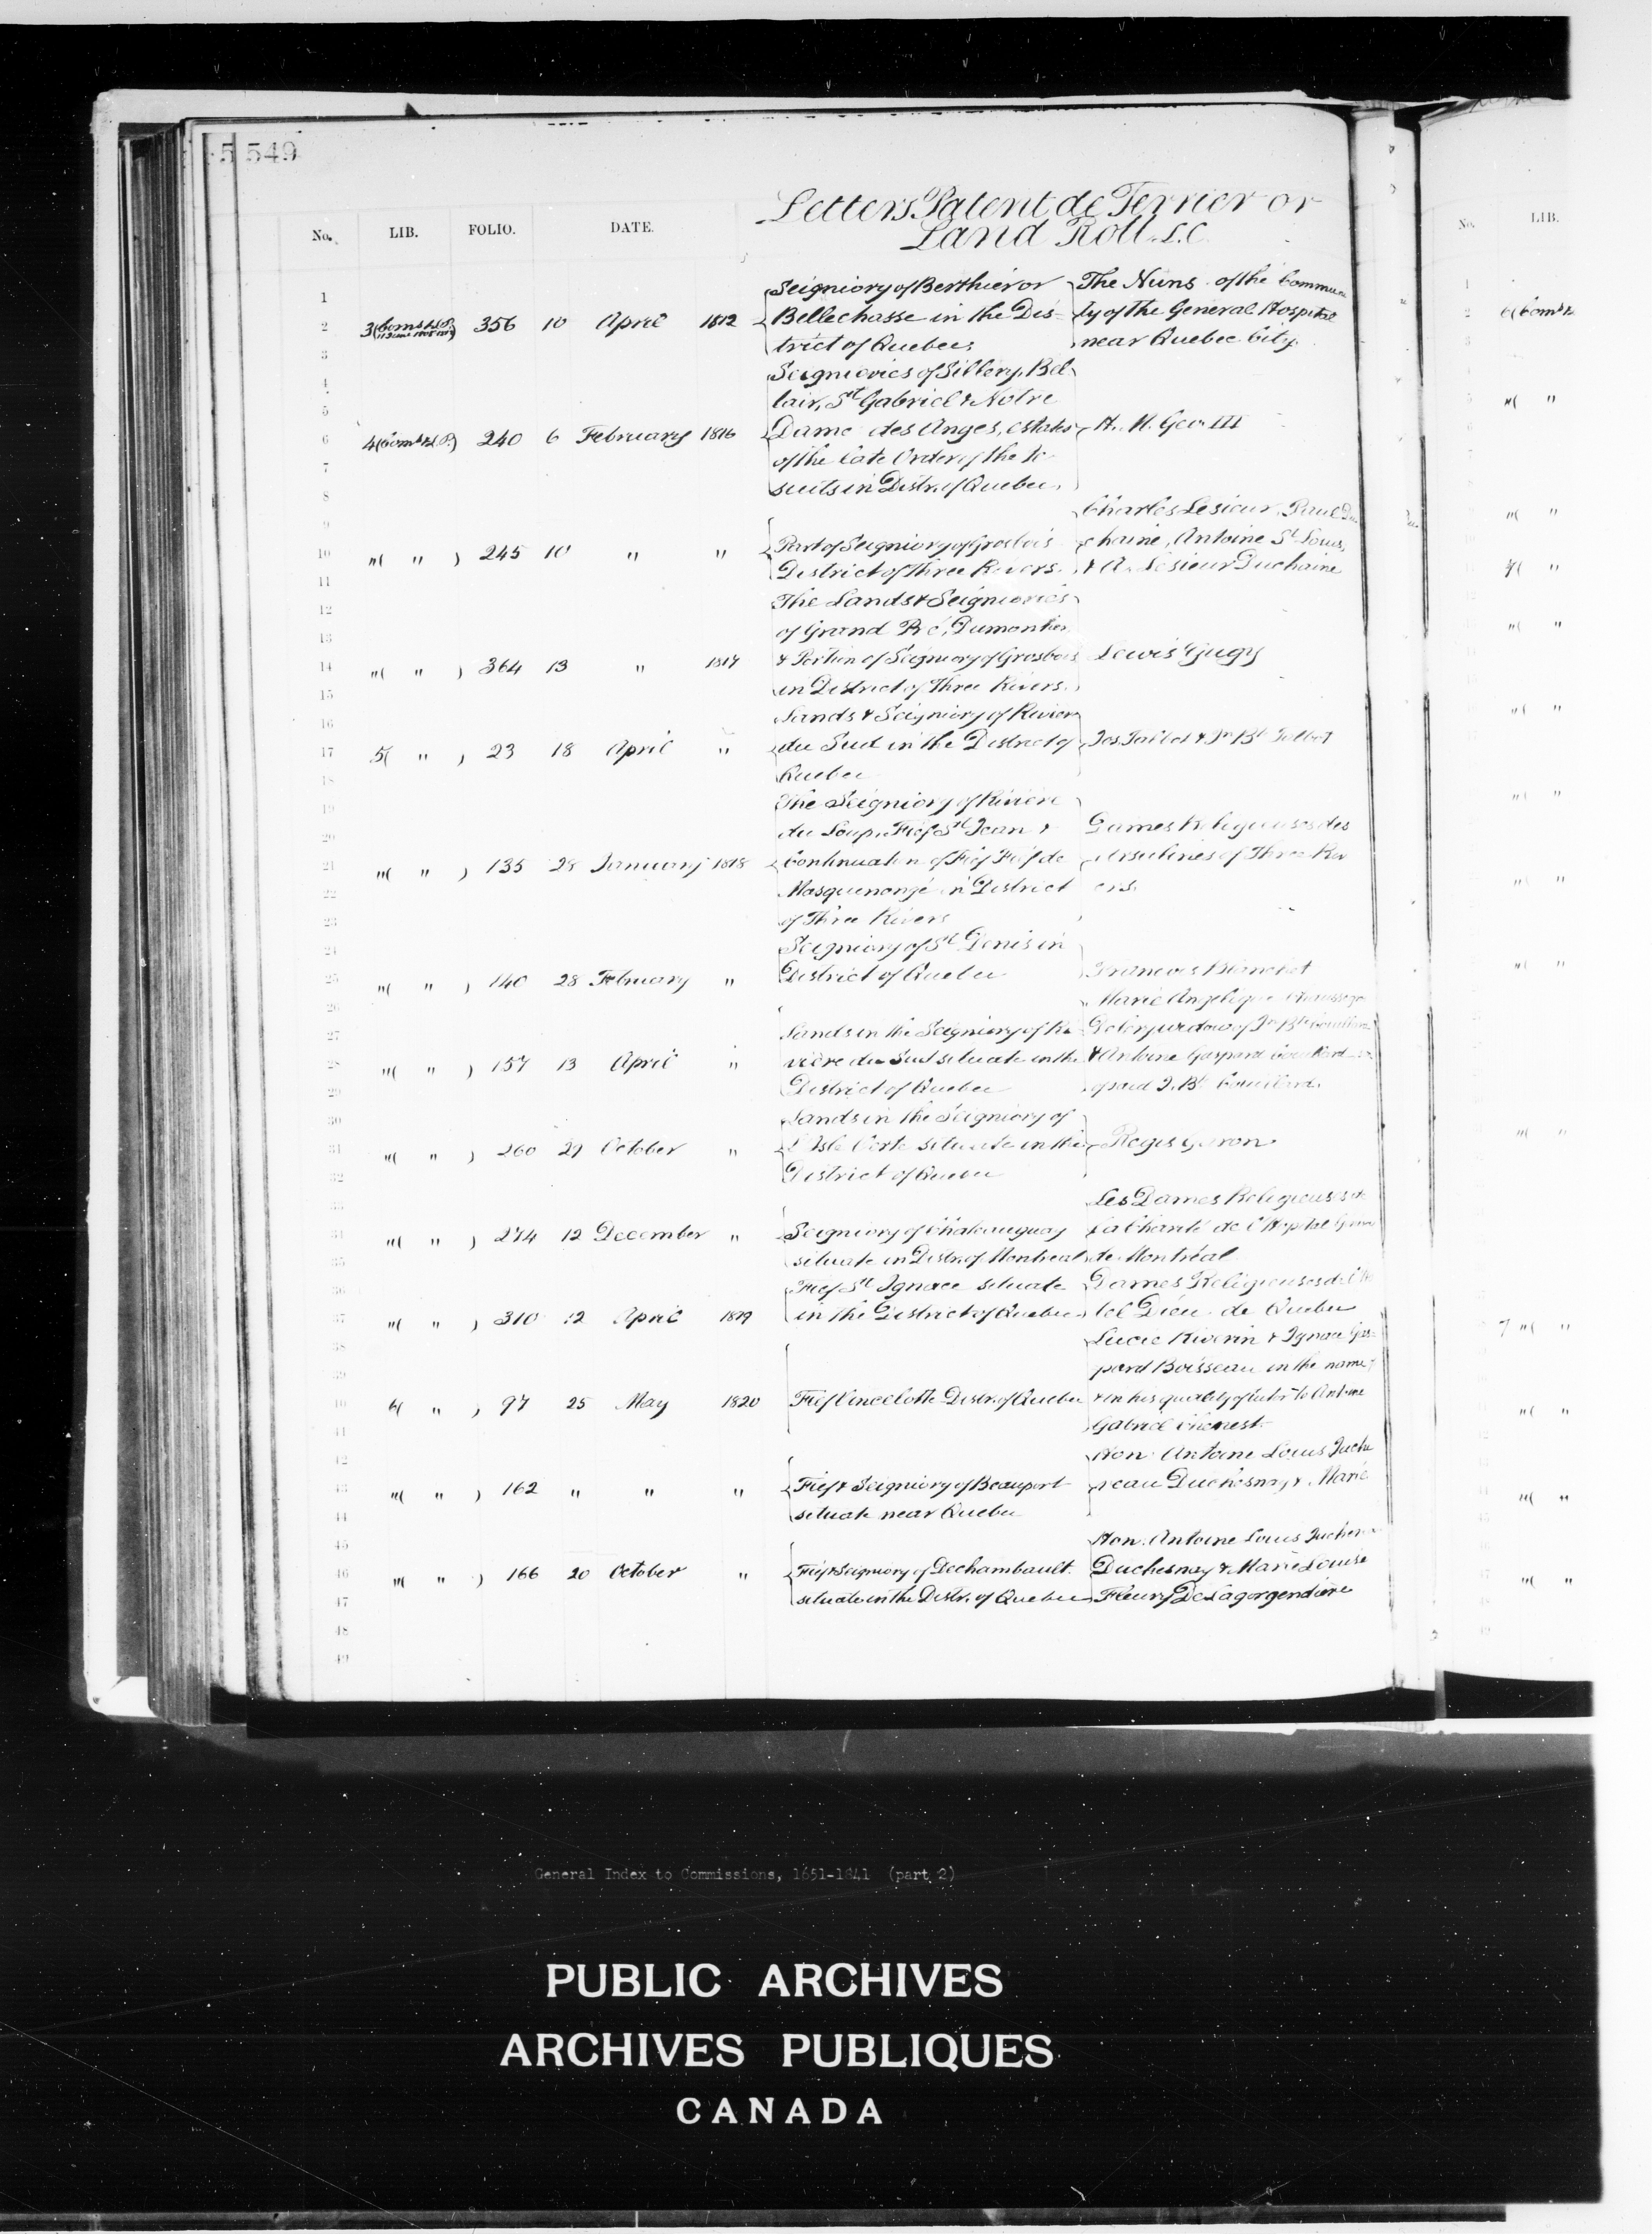 5 549
Letters Patent de Terrier or
Land Roll. L.C.
No. LIB. FOLIO. DATE.
Seigniory of Berthier or The Nuns of the Commun
3 356 10 April 1812 Bellechasse in the Dis- ty of the General Hospital
trict of Quebec near Quebec City.
Seigniories of Sillery, Bel
lair, St Gabriel & Notre
4 240 6 February 1816 Dame des Anges, estates H. M. Geo. III
of the late Order of the Je
suits in Distr. of Quebec.
Charles Lesieur, Paul Du
"( " ) 245 10 " " Part of Seigniory of Grosbois chaine, Antoine St Louis,
District of Three Rivers. & A. Lesieur Duchaine
The Lands & Seigniories
of Grand Pré, Dumontier
"( " ) 364 13 " 1817 & Portion of Seigniory of Grosbois Lewis Gugy
in District of Three Rivers.
Lands & Seigniory of Riviere
5( " ) 23 18 April " du Sud in the District of Jos. Talbot & Jn Bt Talbot
Quebec
The Seigniory of Rivière
du Loup, Fief St Jean & Dames Religieuses des
"( " ) 135 28 January 1818 Continuation of Fief Fief de Ursulines of Three Riv
Masquenongé in District ers.
of Three Rivers
Seigniory of St Denis in
"( " ) 140 28 February " District of Quebec Francois Blanchet
Marie Angelique Chaussego
Lands in the Seigniory of Ri Delery widow of Jn Bte Couillard
"( " ) 157 13 April " vière du Sud situate in the & Antoine Gaspard Couillard
District of Quebec J. Bt Couillard.
Lands in the Seigniory of
"( " ) 260 29 October " L'Isle Verte situate in the Regis Garon
District of Quebec
Les Dames Religieuses de
"( " ) 274 12 December " Seigniory of Chateauguay la Charité de l'Hopital Géné
situate in Distr. of Montreal de Montréal
Fief St Ignace situate Dames Religieuses de l'Hô
"( " ) 310 12 April 1819 in the District of Quebec tel Dieu de Quebec
Lucie Riverin & Ignace Gas-
pard Boisseau in the name
6( " ) 97 25 May 1820 Fief Vincelotte Distr. of Quebec & in his quality of tutor to Antoine
Gabriel Chenest
Hon. Antoine Louis Juche
"( " ) 162 " " " Fief & Seigniory of Beauport reau Duchesnay & Marie
situate near Quebec
Hon. Antoine Louis Juchereau
"( " ) 166 20 October " Fief & Seigniory of Dechambault. Duchesnay & Marie Louise
situate in the Distr. of Quebec Fleury De Lagorgendiere
No. LIB.
General Index to Commissions, 1651-1841 (part 2)
PUBLIC ARCHIVES
ARCHIVES PUBLIQUES
CANADA